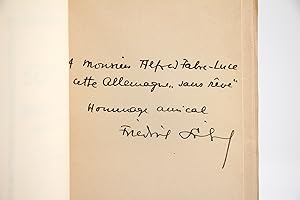 A Monsieur Alfred Fabre-Luce
cette Allemagne „sans rêve"
Hommage amical
Friedrich